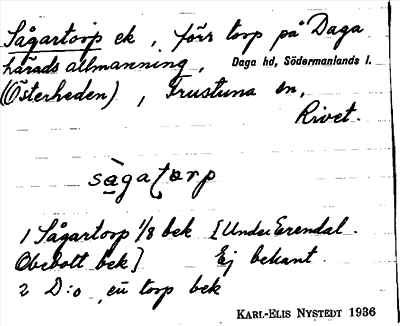 Sågartorp ek, förr torp på Daga
härads allmänning, Daga hd, Södermanlands l.
(Österheden), Frustuna sn,
Rivet.
sàgatorp
1 Sågartorp 1/8 bek [Under Erendal.
Obebott bek] Ej bekant.
2 D:o, en torp bek
KARL-ELIS NYSTEDT 1936